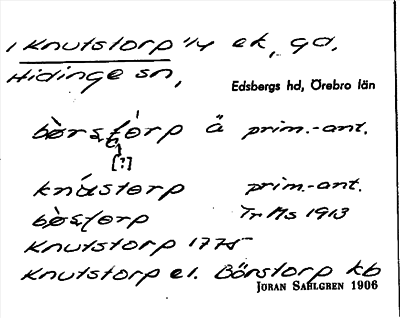 1 Knutstorp 1/4 ek, gd,
Hidinge sn,
Edsbergs hd, Örebro län
børstòrp å prim.-ant.
[?]
knástorp prim.-ant.
bøstorp Tr Ms 1913
Knutstorp 1775
Knutstorp el. Bönstorp kb
JÖRAN SAHLGREN 1906